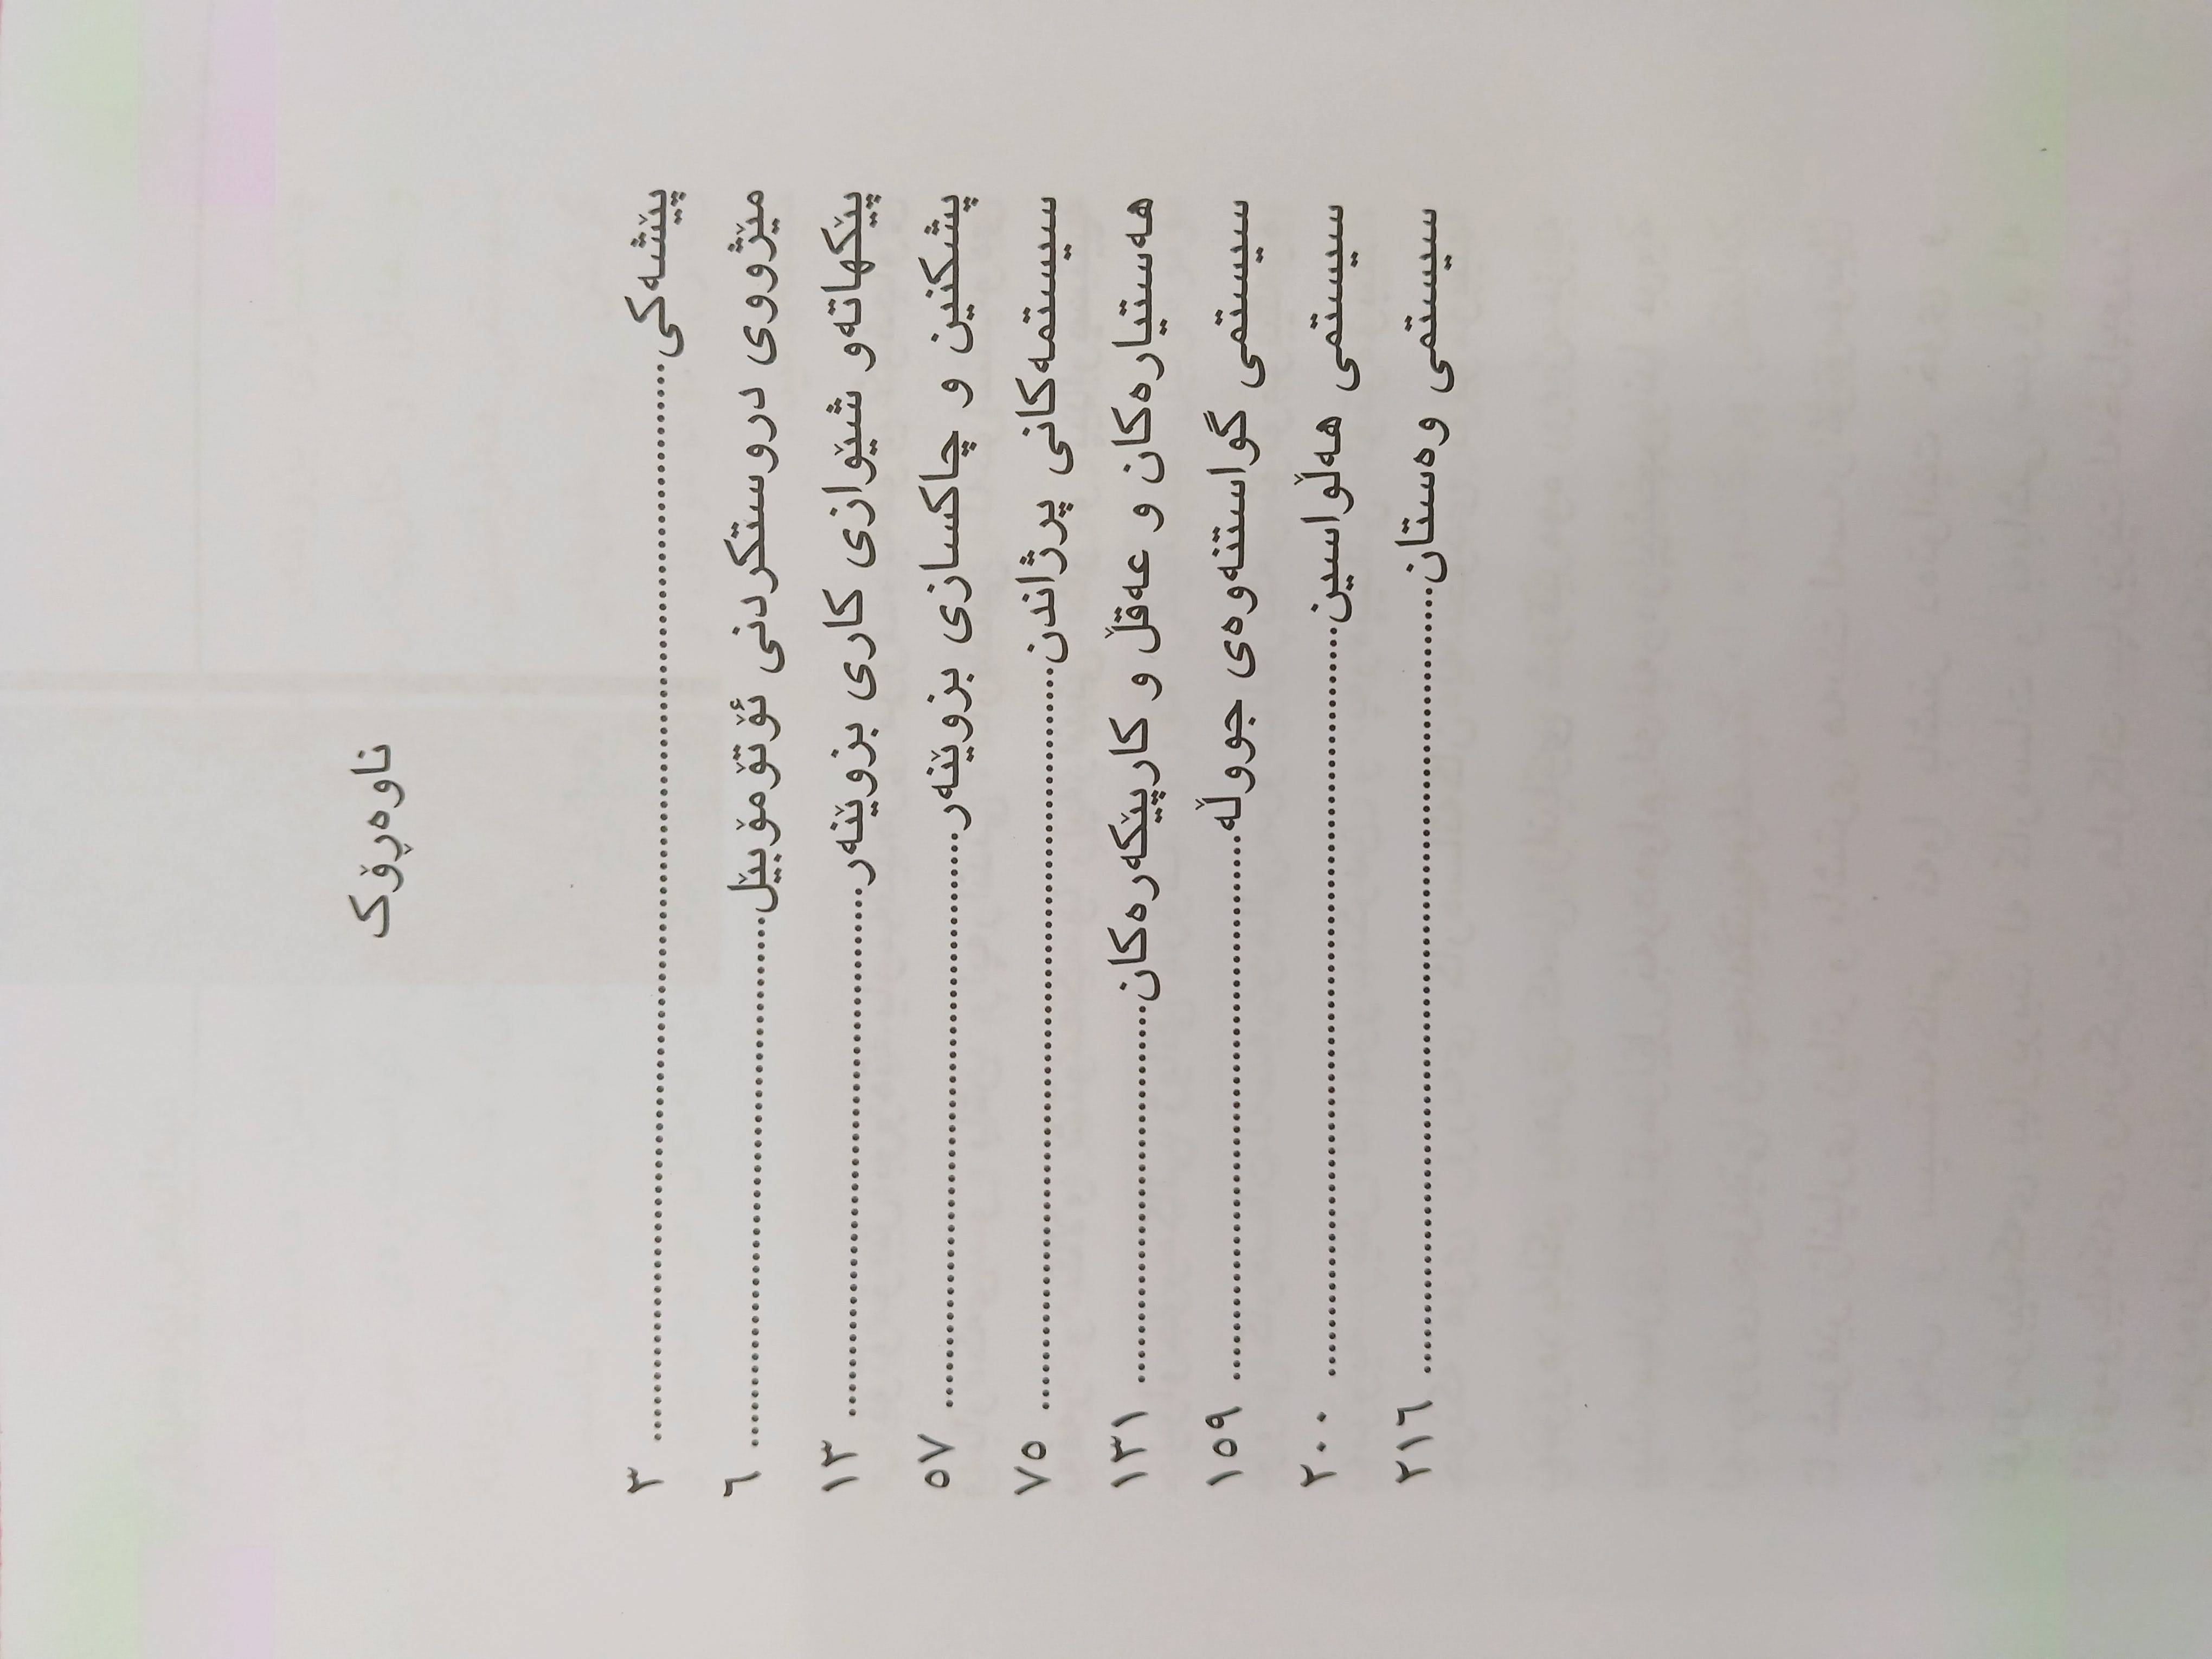 ناوەڕۆک
پێشەکی................................................................................ ٣
مێژووی دروستکردنی ئۆتۆمۆبێل........................................ ٦
پێکهاتەو شێوازی کاری بزوێنەر........................................ ١٣
پشکنین و چاکسازی بزوێنەر............................................ ٥٧
سیستمەکانی پرژاندن...................................................... ٧٥
هەستیارەکان و عەقڵ و کارپێکەرەکان............................ ١٣١
سیستمی گواستنەوەی جووڵە........................................ ١٥٩
سیستمی هەڵواسین...................................................... ٢٠٠
سیستمی وەستان.......................................................... ٢١٦